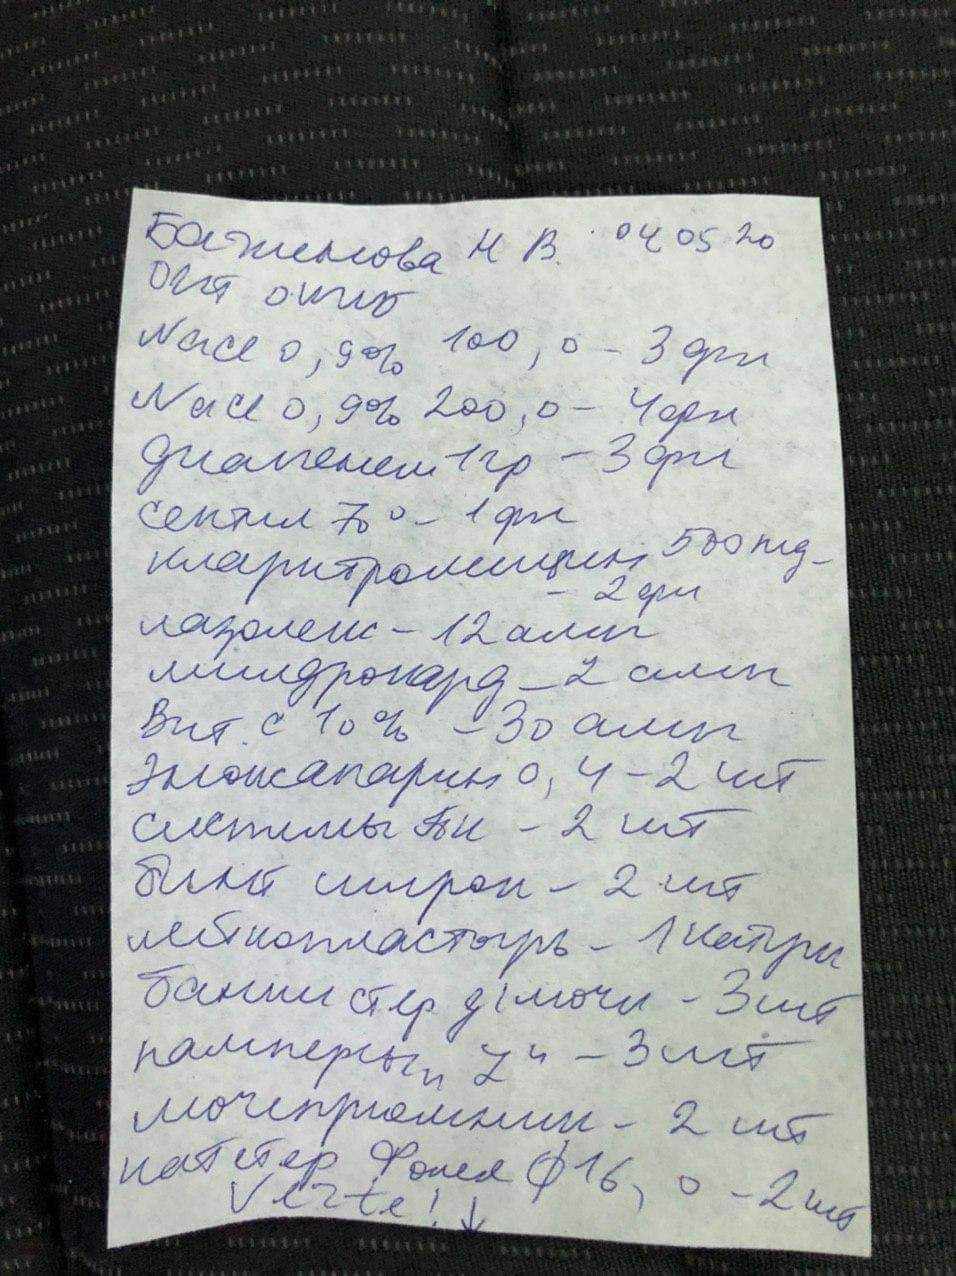 Баженова Н В. 04 05 20
ОИТ
NaCl 0,9% 100,0 – 3 фл
NaCl 0,9% 200,0 – 4 фл
диапенем 1гр – 3 фл
септил 70° – 1 фл
кларитромицин 500 мг –
– 2 фл
лазолекс – 12 амп
милдрокард – 2 амп
Вит. С 10% – 30 амп
Эноксапарин 0,4 – 2 шт
системы ПК – 2 шт
бинт широк – 2 шт
лейкопластырь – 1 катуш
банки стер д/мочи – 3 шт
памперсы – 3 шт
мочеприемник – 2 шт
катетер Фолея ф 16,0 – 2 шт
Verte! ↓